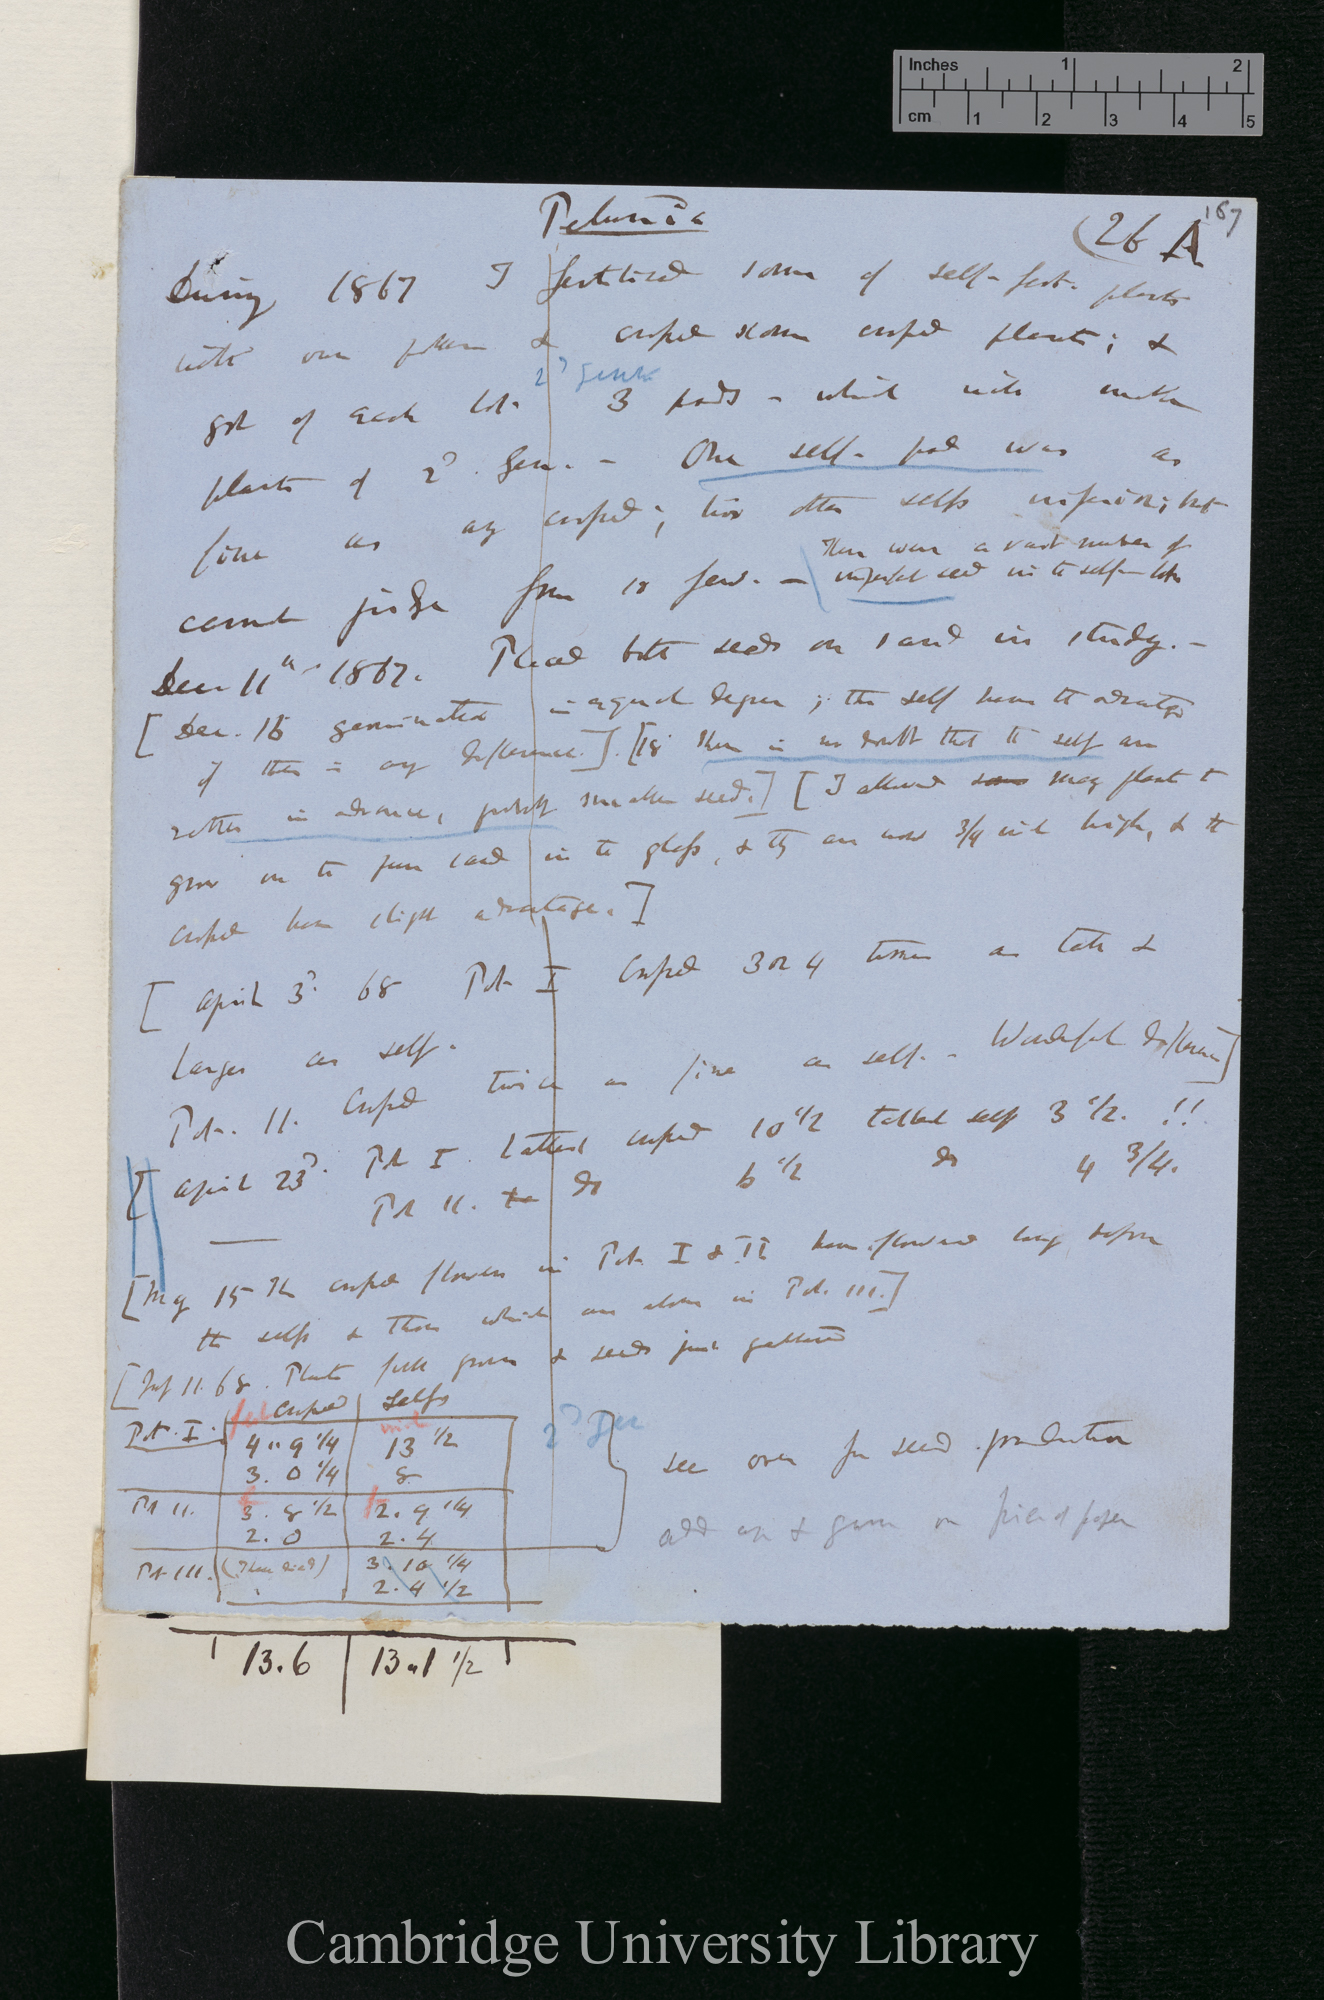 Inches 1 2
cm 1 2 3 4 5
Petunia
(26 A
167
During 1867 I fertilised some of self-fert. plants
with own pollen & crossed some crossed plants; &
2d Genr
got of each lot. 3 pods – which will make
plants of 2d. Gen. – One self-pod was as
fine as any crossed; two other selfs inferior; but
cannot judge from so few. –
There were a vast number of
imperfect seed in the self-lots
Dec 11th 1867. Placed both seeds on sand in study. –
[Dec. 15 germinated in equal degree; the self have the advantage
if there is any difference.]. [18 there is no doubt that the self are
rather in advance, probably smaller seed.] [I allowed some many plants to
grow on the pure sand in the glass, & they are now 3/4 inch high, & the
crossed have slight advantage.]
[April 3d. 68 Pot I Crossed 3 or 4 times as tall &
larger as self.
Pot. II. Crossed twice as fine as self. – Wonderful difference]
[April 23d. Pot I. tallest crossed 10 1/2 tallest self 3 1/2. !!
Pot II. do 6 1/2 do 4 3/4.
[May 15 The crossed flowers in Pot. I & II have flowered long before
the selfs & those which are alone in Pot. III.]
[July 11. 68. Plants full grown & seeds just gathered
Crossed Selfs
Pot. I. 4" 9 1/4 13 1/2
3. 0 1/4 8
2d Gen
Pot II. 3. 8 1/2 2. 9 1/4
2. 0 2. 4
Pot III. (These died) 3. 10 1/4
2. 4 1/2
see over for seed production
add up & given on piece of paper
13.6 13.1 1/2
Cambridge University Library